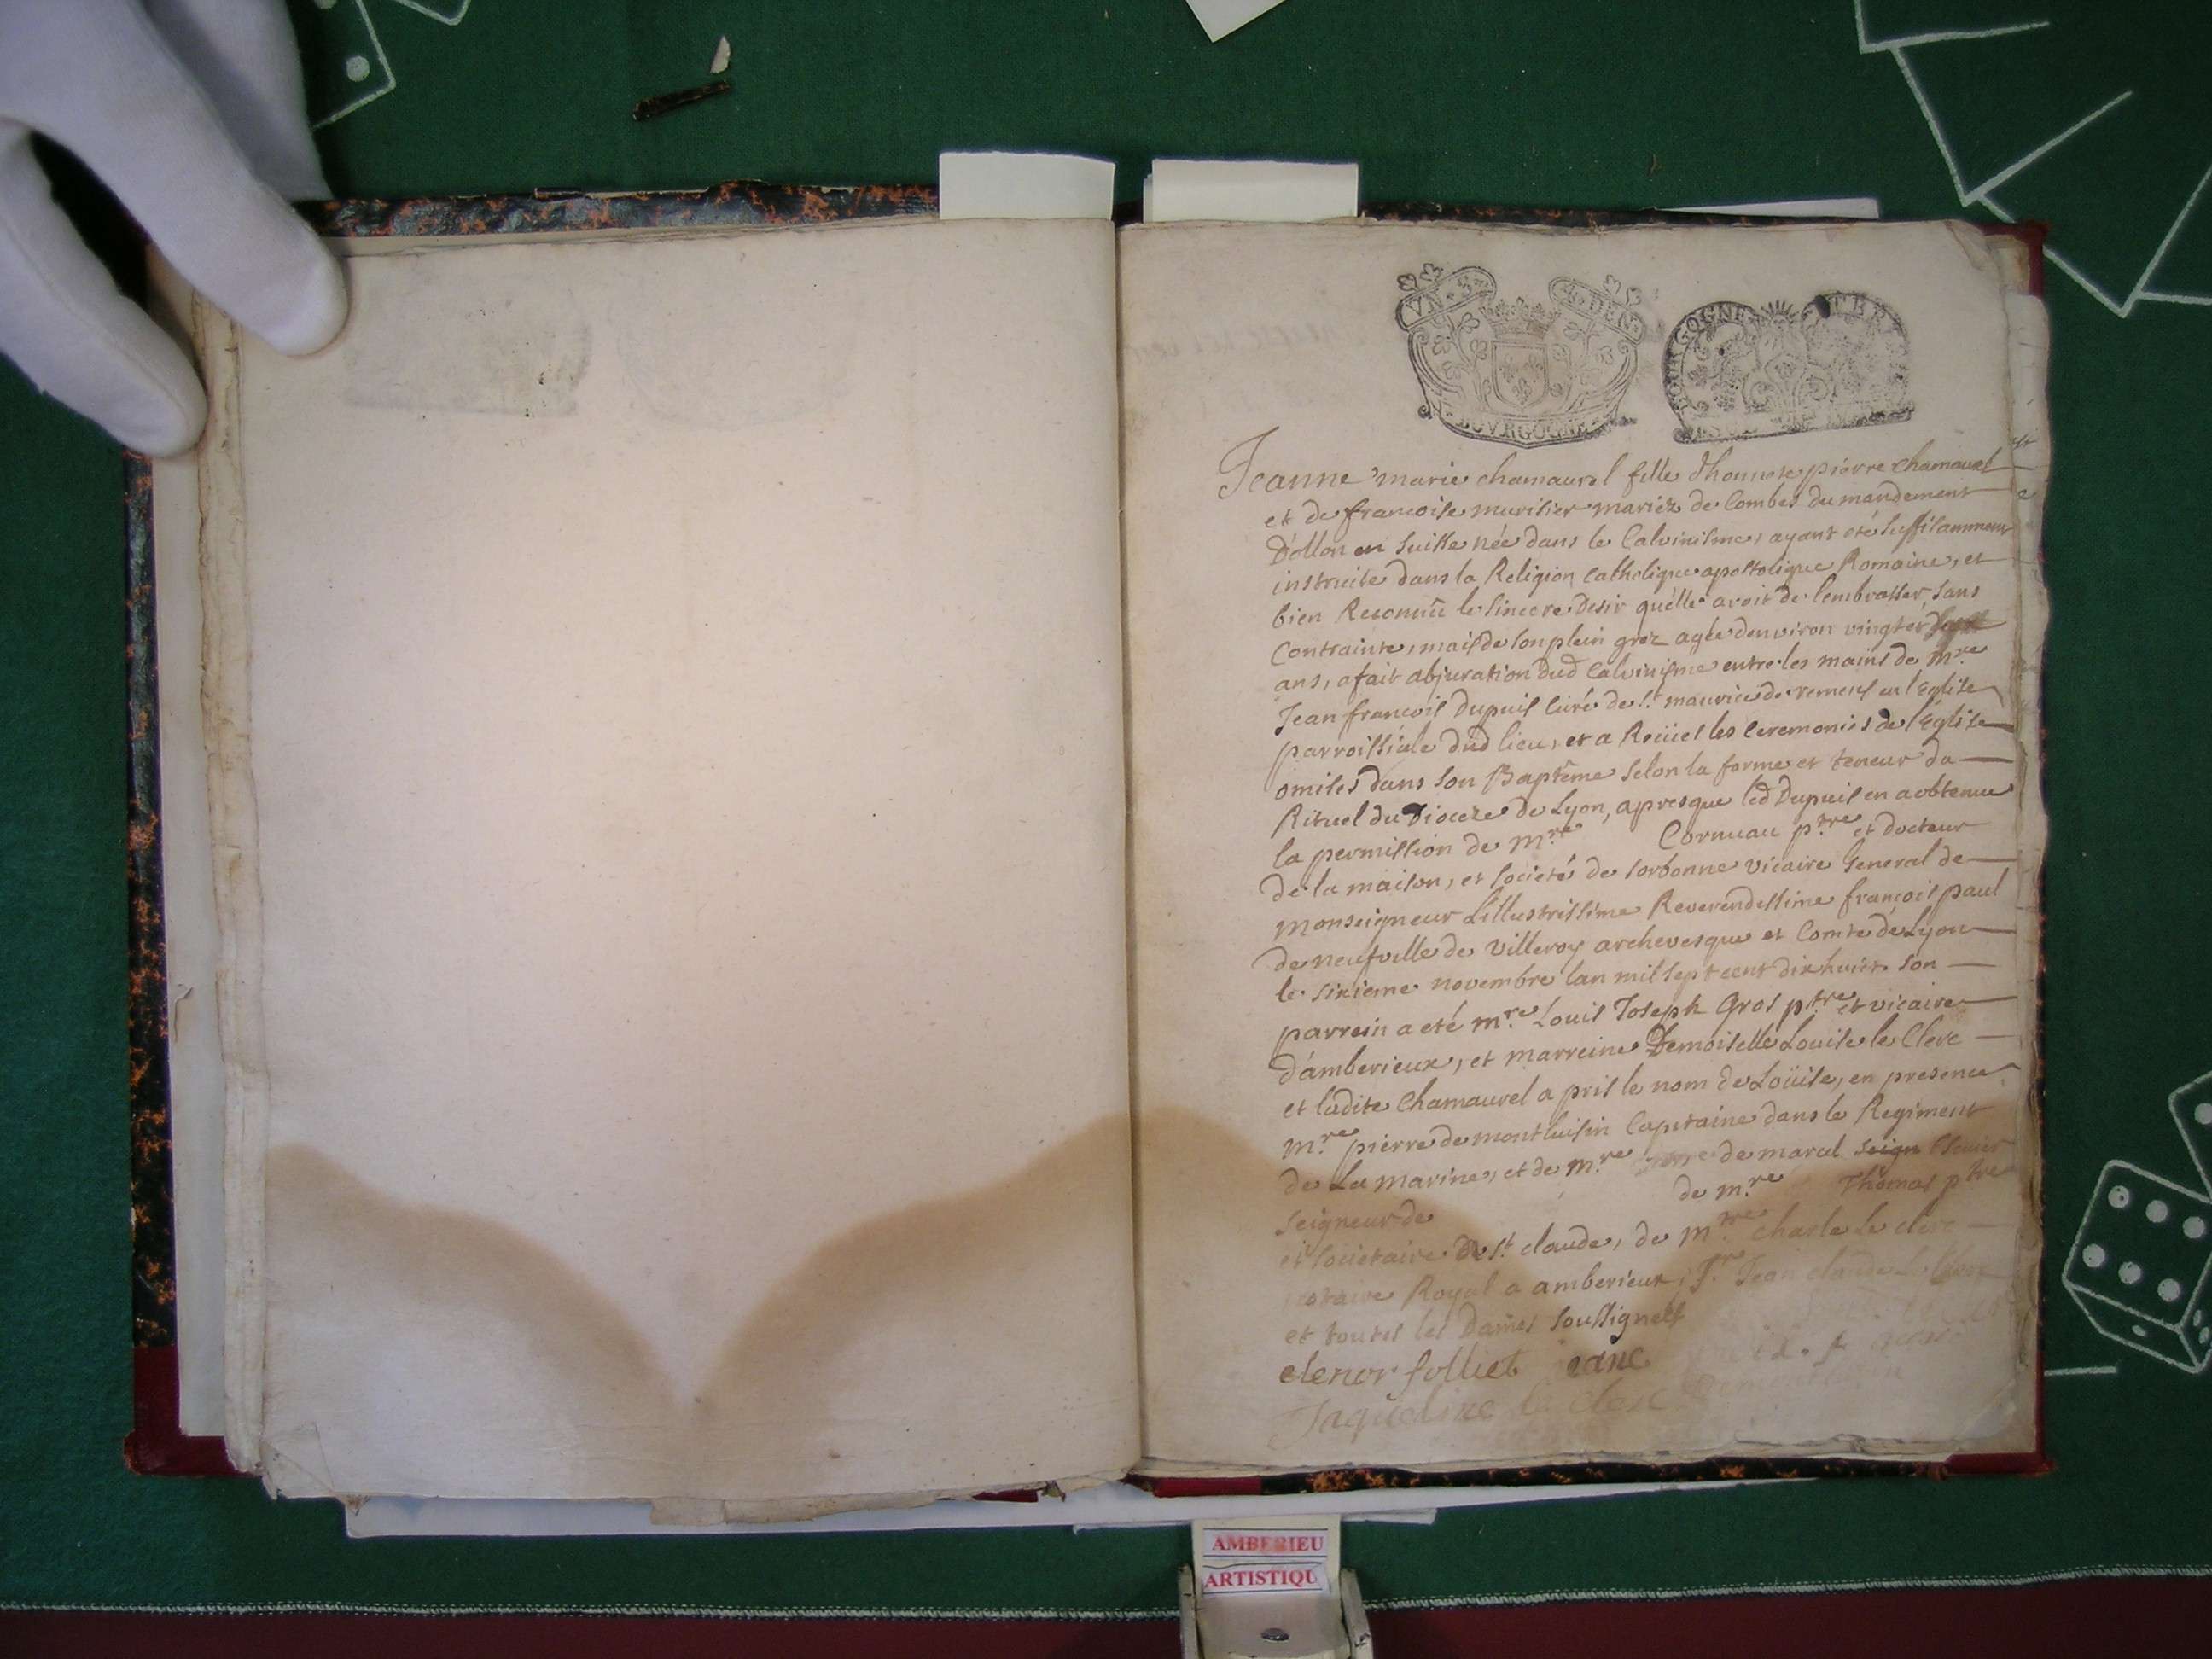 VN · S
4 · DEN
BOVRGOGNE
BOURGOGNE
Jeanne marie chamaurel fille d'honnete pierre chamaurel
et de francoise murisier mariéz de Combes du mandement
D'ollon en suisse née dans le Calvinisme, ayant eté suffisamment
instruite dans la Religion catholique apostolique Romaine, et
bien Reconnû le sincere desir qu'elle avoit de l'embrasser, sans
Contrainte, mais de son plein grez agée d'environ vingt et
ans, a fait abjuration dud Calvinisme entre les mains de mre
Jean francois Dupuis Curé de st maurice de remens en l'Eglise
parroissiale dud lieu, et a Reçües les ceremonies de l'Eglise
omises dans son Baptême selon la forme et teneur du
Rituel du Dioceze de Lyon, apres que led Dupuis en a obtenue
la permission de mre Cornuau ptre et docteur
de la maison, et societé de sorbonne vicaire General de
monseigneur L'illustrissime Reverendissime francois paul
de neufville de villeroy archevesque et Comte de Lyon
le sixieme novembre l'an mil sept cent dix huit. son
parrein a eté mre Louis Joseph Gros ptre et vicaire
d'amberieux, et marreine Demoiselle Louise le Clerc
et ladite Chamaurel a pris le nom de Loüise, en presence
mre pierre de montluisin Capitaine dans le Regiment
de La marine, et de mre de marcel seign
seigneur de de mre Thomas ptre
et societaire de st claude, de mre charle le clerc
notaire Royal a amberieux, Sr Jean claude
et toutes les Dames soussignées
elenor folliet
Jaqueline le clerc
AMBERIEU
ARTISTIQU